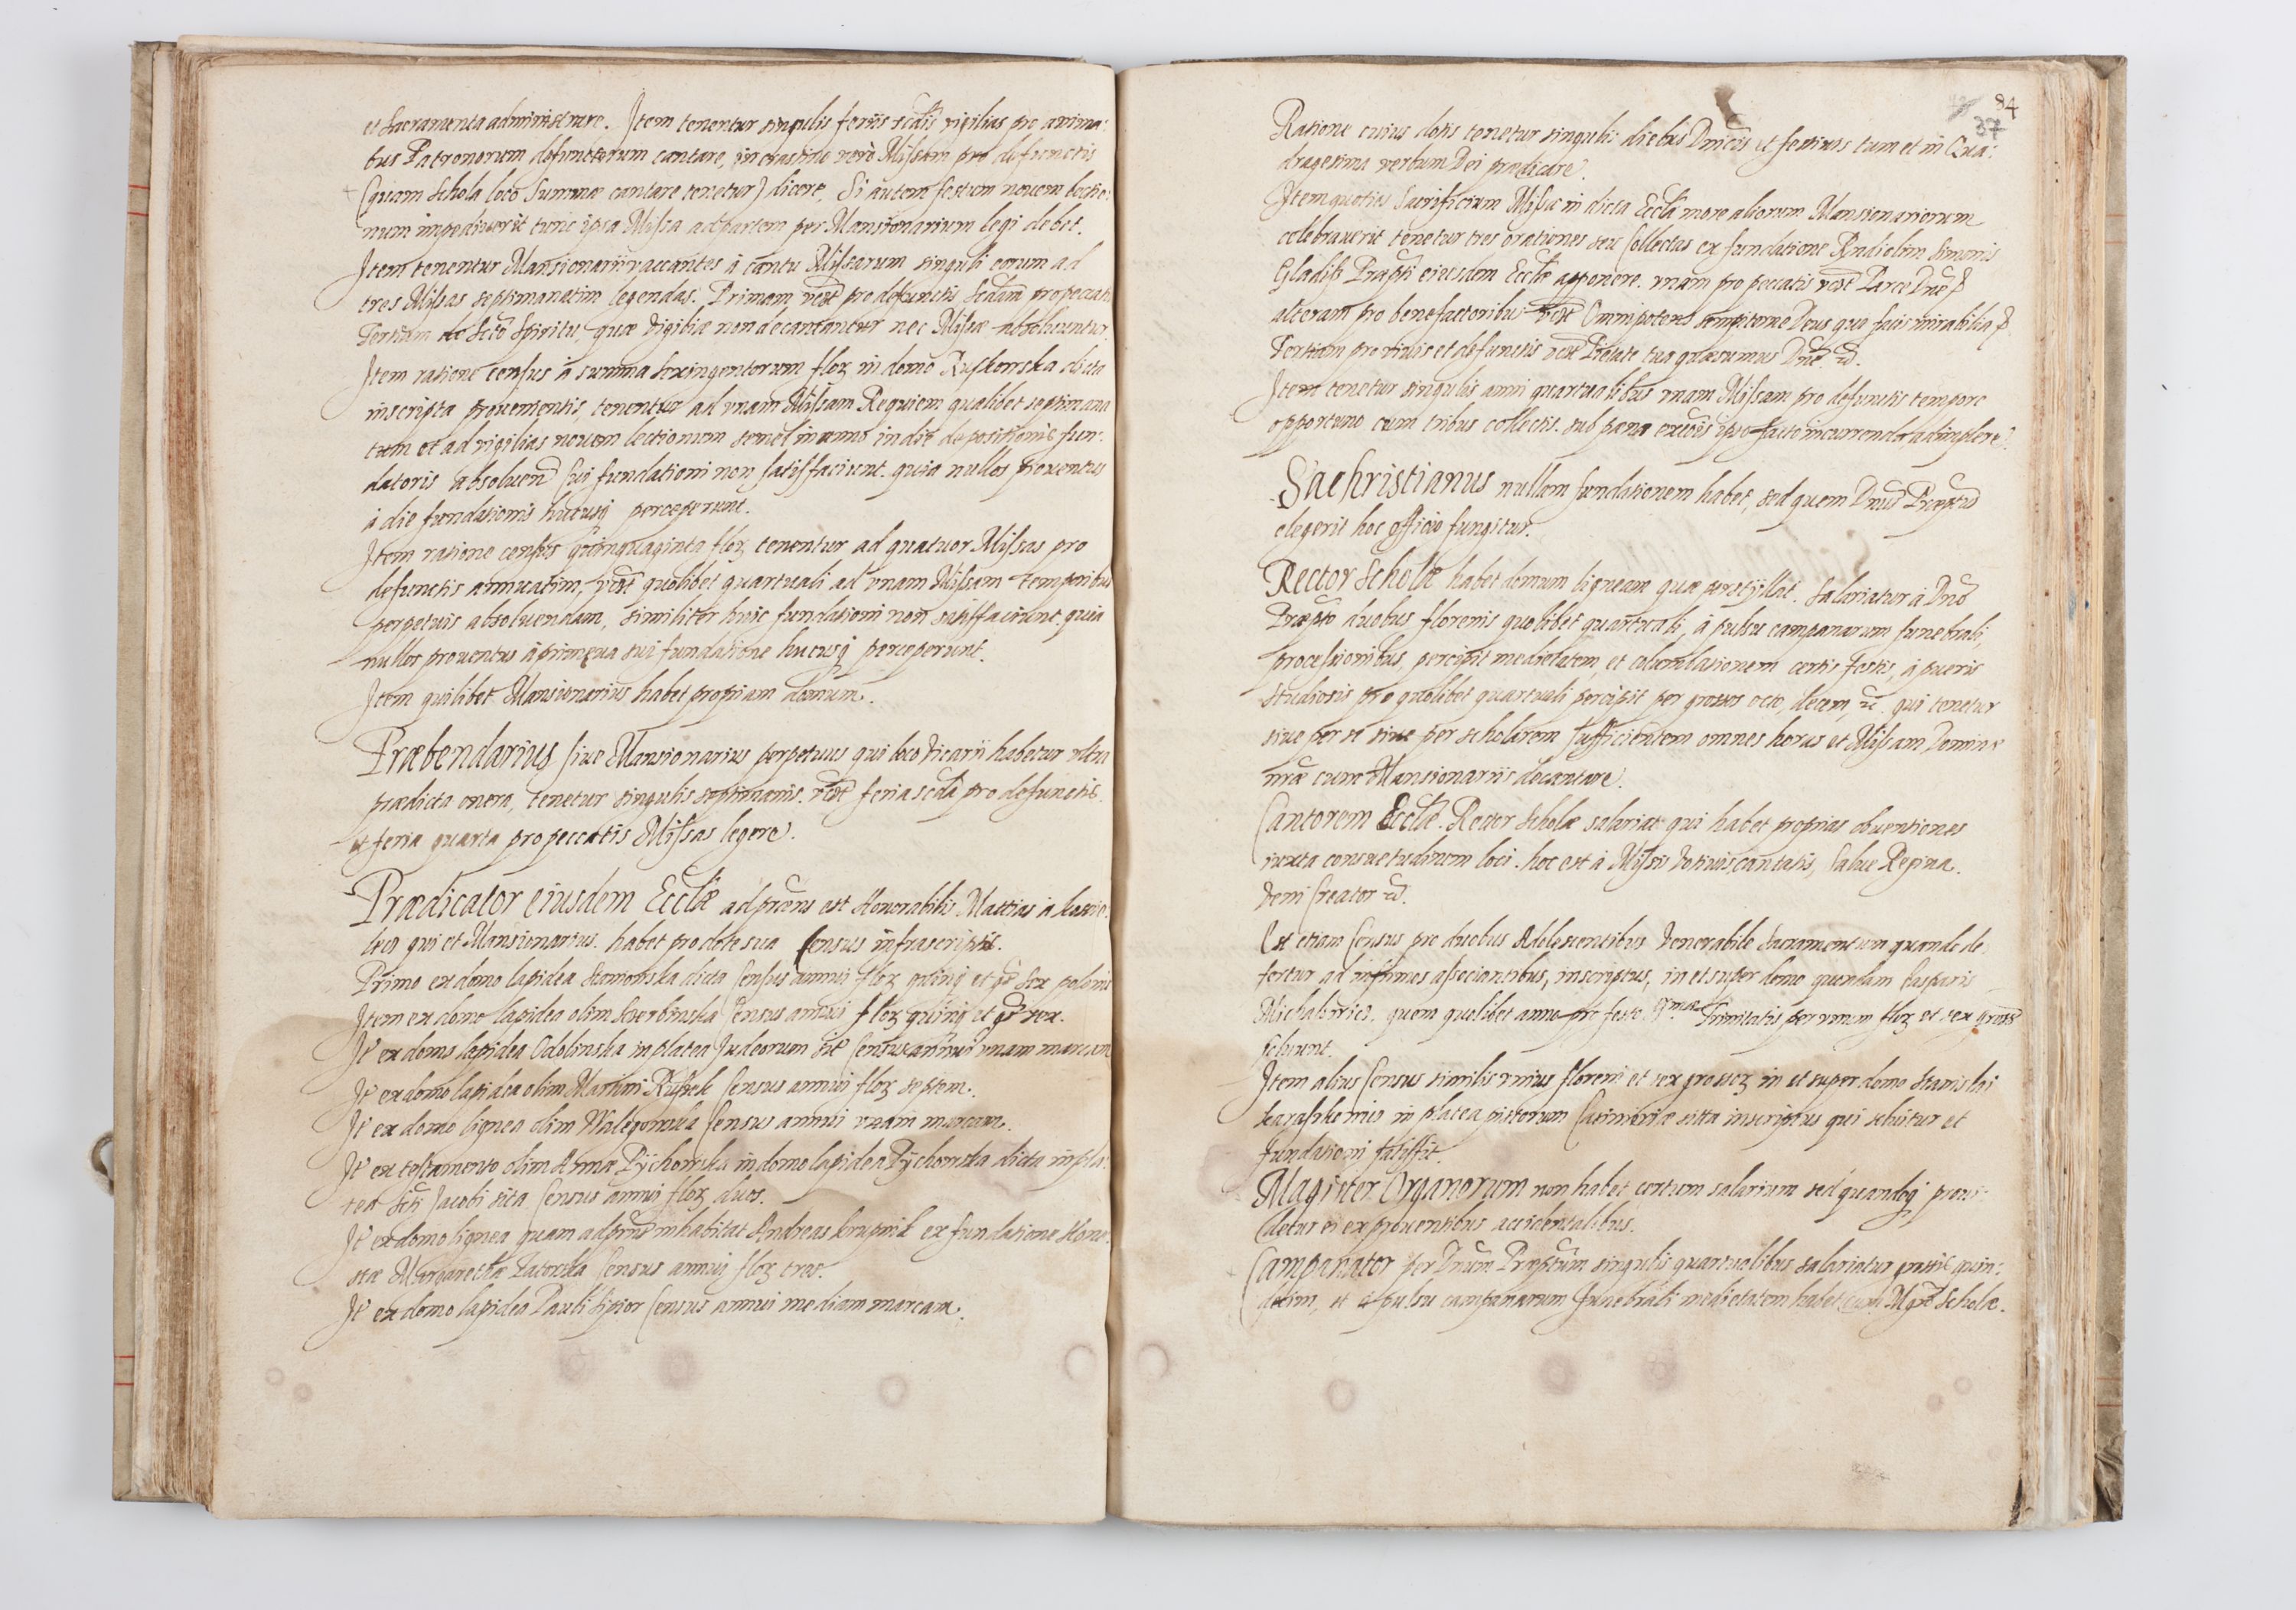 et Sacramenta administrare. Item tenentur singulis feriis scdis vigilias pro anima:
bus Patronorum defunctorum cantare, in crastino vero Missam pro defunctis
(quam Schola loco Summæ cantare tenetur) dicere. Si autem festum nouem lectio:
num impediuerit tunc ipsa Missa ad partem per Mansionarium legi debet.
Item tenentur Mansionarii vaccantes à cantu Missarum singuli eorum ad
tres Missas septimanatim legendas. Primam vdt pro defunctis Scdam pro peccatis
Tertiam de Scto Spiritu, quæ vigiliæ non decantantur nec Missæ absoluuntur.
Item ratione census à summa sexingentorum flor in domo Ruskowska dicta
inscripta prouenientis, tenentur ad vnam Missam Requiem qualibet septimana
tum et ad vigilias nouem lectionum semel in anno in die depositionis fun:
datoris absoluend sui fundationi non satisfaciunt. quia nullos prouentus
à die fundationis hucusq perceperunt.
Item ratione census quinquaginta flor tenentur ad quatuor Missas pro
defunctis annuatim, vdt quolibet quartuali ad vnam Missam temporibus
perpetuis absoluendam, similiter huic fundationi non satisfaciunt, quia
nullos prouentus à primæua sui fundatione hucusq perceperunt.
Item quilibet Mansionarius habet propriam domum.
Præbendarius siue Mansionarius perpetuus qui loco vicarii habetur vltra
prædicta onera, tenetur singulis septimanis. vdt feria scda pro defunctis
et feria quarta pro peccatis Missas legere.
Prædicator eiusdem Ecclæ ad præns est Honorabilis Mattias à
qui et Mansionarius. habet pro dote sua census infrascriptos.
Primo ex domo lapidea dicta Census annui flor quinq et gr sex
Item ex domo lapidea olim Census annui flor quinq et gr sex.
It ex domo lapidea Odolinska in platea Judeorum Census annui vnam marcam
It ex domo lapidea olim Martini Census annui flor septem.
It ex domo lignea olim Census annui vnam marcam.
It ex testamento olim Annæ Pÿchowska in domo lapidea Pÿchowska dicta in pla:
tea Scti Jacobi sita Census annui flor duos.
It ex domo lignea quam ad præns inhabitat Andreas Krupnik ex fundatione Hone:
stæ Margarethæ Zatorska Census annui flor tres.
It ex domo lapidea Pauli Census annui mediam marcam.
84
37
Ratione cuius dotis tenetur singulis diebus Dnicis et festiuis tum et in Qua:
dragesima verbum Dei prædicare.
Item quoties Sacrificium Missæ in dicta Eccla more aliorum Mansionariorum
celebrauerit tenetur tres orationes seu Collectas ex fundatione olim Simonis
Præpti eiusdem Ecclæ apponere. vnam pro peccatis vdt Parce Dne
alteram pro benefactoribus vdt Omnipotens sempiterne Deus qui facis mirabilia
Tertiam pro viuis et defunctis vdt Pietate tua quæsumus Dne
Item tenetur singulis anni quartualibus vnam Missam pro defunctis tempore
opportuno cum tribus collectis. sub pæna excois ipso facto incurrenda, adimplere.
Sachristianus nullam fundationem habet, sed quem Dnus Præptus
elegerit hoc officio fungitur.
Rector Scholæ habet domum ligneam quæ Salariatur à Dno
Præpto duobus florenis quolibet quartuali, à pulsu campanarum funebrali,
processionibus, percipit medietatem, et certis festis, à pueris
studiosis pro quolibet quartuali percipit per grossos octo, decem, qui tenetur
siue per se siue per scholarem sufficientem omnes horas et Missam Dominæ
nræ cum Mansionariis decantare.
Cantorem Ecclæ. Rector Scholæ salariat qui habet proprias obuentiones
iuxta consuetudinem loci. hoc est à Missis votiuis, cantatis, Salue Regina.
Veni Creator
Est etiam Census pro duobus Adolescentibus Venerabile Sacramentum quando de:
fertur ad infirmos associantibus, inscriptus, in et super domo quondam Casparis
Michalowicz, quem quolibet anno pro festo Trinitatis per vnum flor et sex gross
soluunt.
Item alius Census similis vnius floreni et sex grossor in et super domo Stanislai
in platea pistorum Casimiriæ sita inscriptus qui soluitur et
fundationi satisfit.
Magister Organorum non habet certum salarium sed quandoq proui:
detur ei ex prouentibus accidentalibus.
Campanator per Dnum Præptum singulis quartualibus salariatur grossis quin:
decim, et à pulsu campanarum funebrali medietatem habet cum Mgro Scholæ.